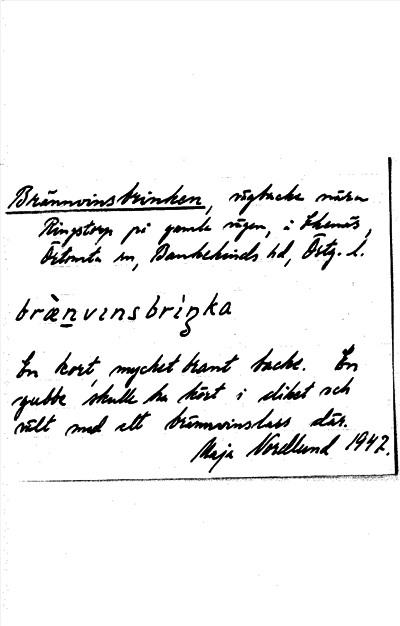 Brännvinsbrinken, vägbacke nära
Ringstorp på gamla vägen, i Ekenäs,
Örtomta sn, Bankekinds hd, Östg. l.
brä̀n̲vinsbriŋka
En kort, mycket brant backe. En
gubbe skulle ha kört i diket och
vält med ett brännvinslass där.
Maja Nordlund 1942.